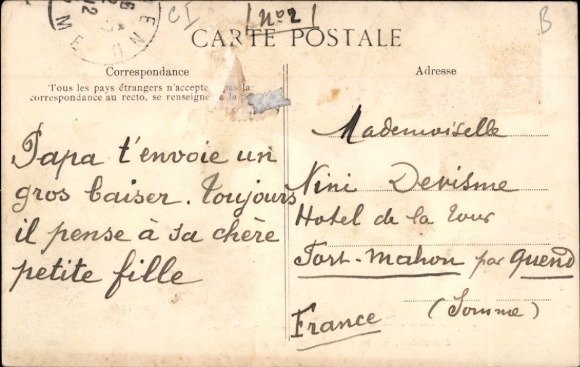 No 2
B
CI
QUEND
CARTE POSTALE
Correspondance
Tous les pays étrangers n'accepte pas la
correspondance au recto, se renseigner à la
Papa t'envoie un
gros baiser. Toujours
il pense à sa chère
petite fille
Adresse
Mademoiselle
Nini Devisme
Hotel de la Tour
Fort-Mahon par Quend
(Somme)
France